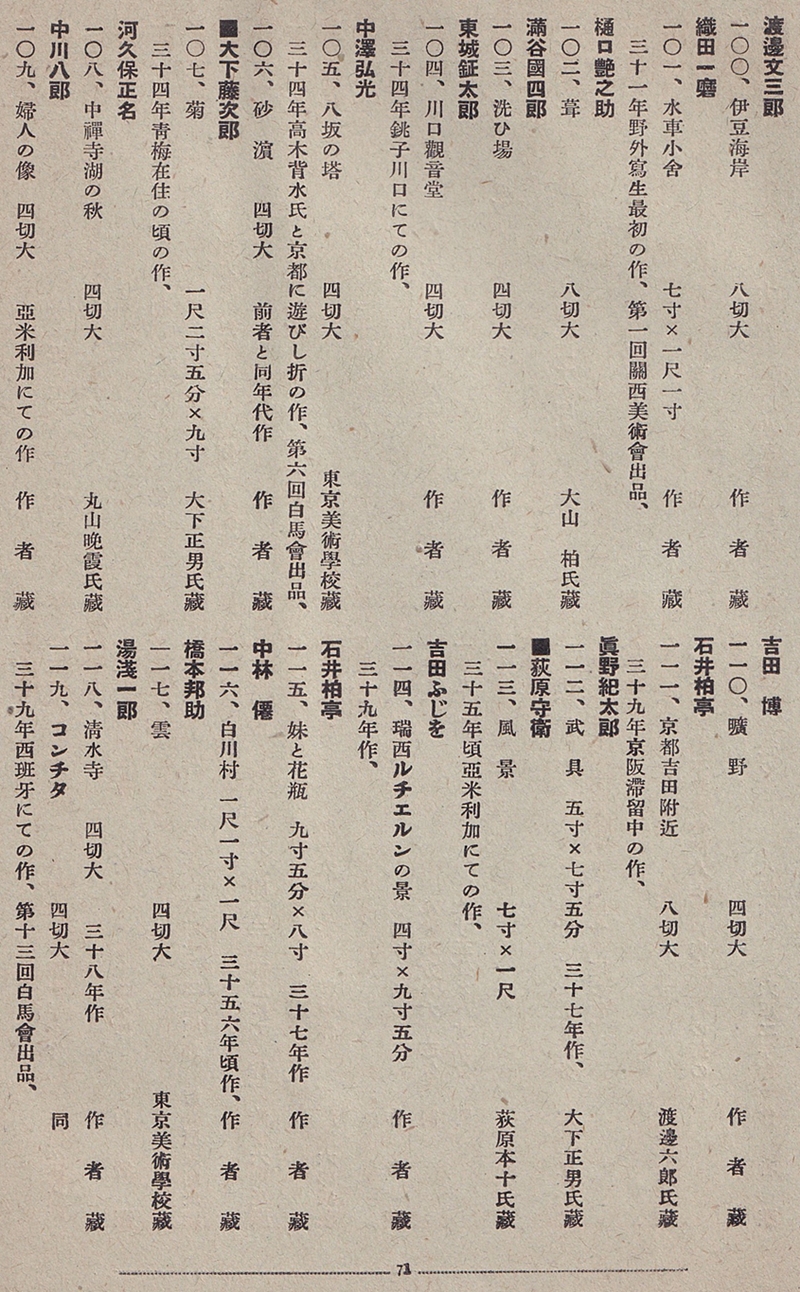 渡邊文三郎
一〇〇、伊豆海岸　八切大　作者藏
織田一磨
一〇一、水車小舍　七寸×一尺一寸　作者藏
三十一年野外寫生最初の作、第一回關西美術會出品、
樋口艶之助
一〇二、葺　八切大　大山　柏氏藏
滿谷國四郎
一〇三、洗ひ場　四切大　作者藏
東城鉦太郎
一〇四、川口觀音堂　四切大　作者藏
三十四年銚子川口にての作、
中澤弘光
一〇五、八坂の塔　四切大　東京美術學校藏
三十四年高木背水氏と京都に遊びし折の作、第六回白馬會出品、
一〇六、砂濱　四切大　前者と同年代作　作者藏
■大下藤次郎
一〇七、菊　一尺二寸五分×九寸　大下正男氏藏
三十四年靑梅在住の頃の作、
河久保正名
一〇八、中禪寺湖の秋　四切大　丸山晚霞氏藏
中川八郎
一〇九、婦人の像　四切大　亞米利加にての作　作者藏
吉田　博
一一〇、曠野　四切大　作者藏
石井柏亭
一一一、京都吉田附近　八切大　渡邊六郎氏藏
三十九年京阪滯留中の作、
眞野紀太郎
一一二、武具　五寸×七寸五分　三十七年作、　大下正男氏藏
■荻原守衛
一一三、風景　七寸×一尺　荻原本十氏藏
三十五年頃亞米利加にての作、
吉田ふじを
一一四、瑞西ルチエルンの景　四寸×九寸五分　作者藏
三十九年作、
石井柏亭
一一五、妹と花瓶　九寸五分×八寸　三十七年作　作者藏
中林　僊
一一六、白川村　一尺一寸×一尺　三十五六年頃作、作者藏
橋本邦助
一一七、雲　四切大　東京美術學校藏
湯淺一郎
一一八、淸水寺　四切大　三十八年作　作者藏
一一九、コンチタ　四切大　同
三十九年西班牙にての作、第十三回白馬會出品、
71